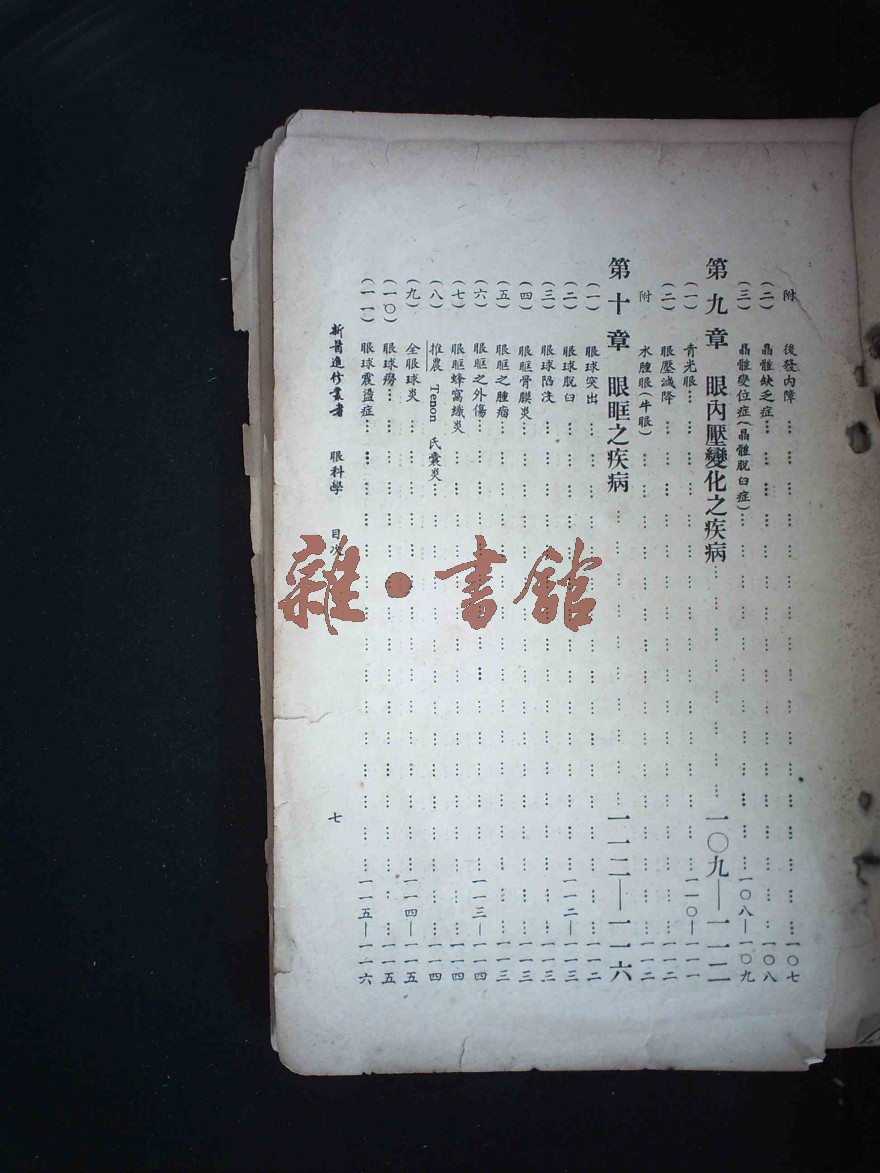 附　後發內障……一〇七
(二)　晶體缺乏症……一〇八
(三)　晶體變位症(晶體脫臼症)……一〇八—一〇九
第九章　眼內壓變化之疾病……一〇九—一一二
(一)　青光眼……一一〇—一一一
(二)　眼壓減降……一一二
附　水腫眼(牛眼)……一一二
第十章　眼眶之疾病……一一二—一一六
(一)　眼球突出……一一二
(二)　眼球脫臼……一一二—一一三
(三)　眼球陷沒……一一三
(四)　眼眶骨膜炎……一一三
(五)　眼眶之腫瘤……一一三
(六)　眼眶之外傷……一一三—一一四
(七)　眼眶蜂窩織炎……一一四
(八)　推農 Tenon 氏囊炎……一一四
(九)　全眼球炎……一一四—一一五
(一〇)　眼球癆……一一五
(一一)　眼球震盪症……一一五—一一六
新醫進修叢書　眼科學　目次　七
雜·書館